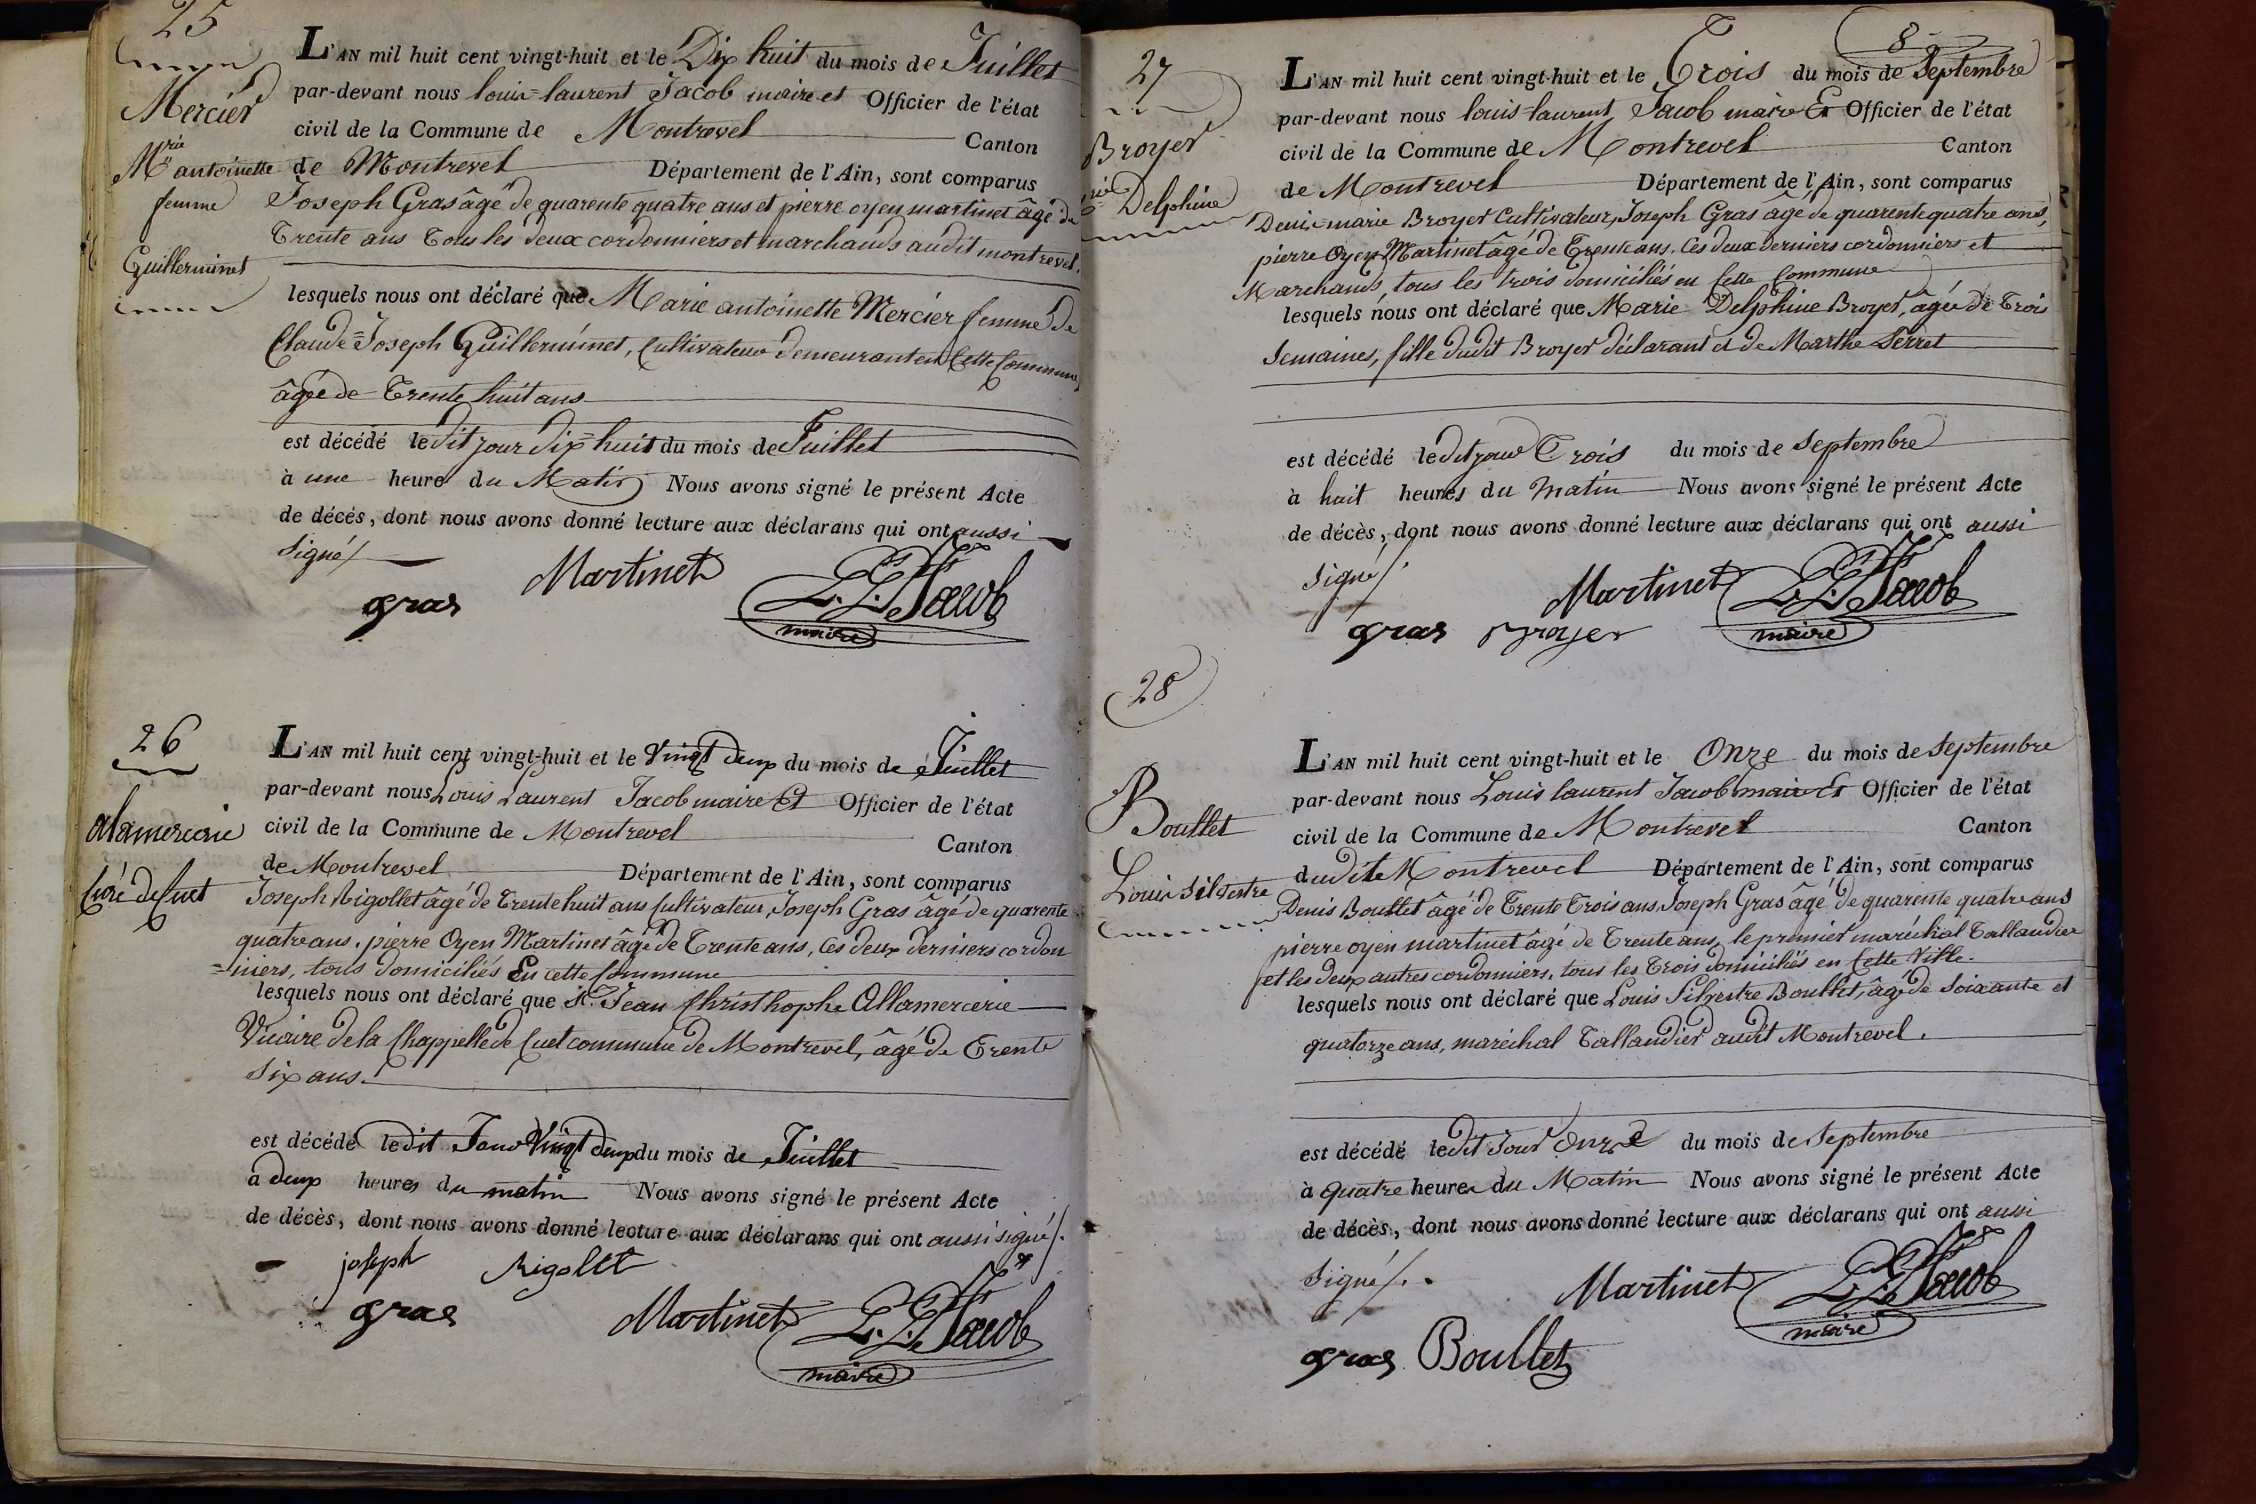 25
Mercier
Mrie
antoinette
femme
Guillerminet
L'AN mil huit cent vingt-huit et le Dix huit du mois de Juillet
par-devant nous louis-laurent Jacob maire et Officier de l'état
civil de la Commune de Montrevel Canton
de Montrevel Département de l'Ain, sont comparus
Joseph Gras âgé de quarente quatre ans et pierre oyen martinet âgé de
Trente ans Tous les deux cordonniers et marchands audit montrevel.
lesquels nous ont déclaré que Marie antoinette Mercier femme de
Claude=Joseph Guillerminet, Cultivateur demeurant en Cette Commune,
âgée de Trente huit ans
est décédé ledit jour Dix=huit du mois de Juillet
à une heure du Matin Nous avons signé le présent Acte
de décés, dont nous avons donné lecture aux déclarans qui ont aussi
signé/.
Martinet
gras
L. L. Jacob
maire
26
alamercerie
Curé de Cuet
L'AN mil huit cent vingt-huit et le Vingt deux du mois de Juillet
par-devant nous Louis Laurent Jacob maire Et Officier de l'état
civil de la Commune de Montrevel Canton
de Montrevel Département de l'Ain, sont comparus
Joseph Rigollet âgé de Trente huit ans Cultivateur, Joseph Gras âgé de quarente
quatre ans. pierre Oyen Martinet âgé de Trente ans, Ces deux derniers cordon
=niers, tous domiciliés En cette Commune
lesquels nous ont déclaré que Sr. Jean Christhophe Allamercerie
Vicaire de la Chappelle de Cuet commune de Montrevel, âgé de Trente
six ans.
est décédé ledit Jour Vingt deux du mois de Juillet
à deux heures du matin Nous avons signé le présent Acte
de décès, dont nous avons donné lecture aux déclarans qui ont aussi signé/.
joseph Rigollet
gras
Martinet
L. L. Jacob
maire
8
27
Broyer
Delphine
L'AN mil huit cent vingt-huit et le Trois du mois de Septembre
par-devant nous louis-laurent Jacob maire Et Officier de l'état
civil de la Commune de Montrevel Canton
de Montrevel Département de l'Ain, sont comparus
Denis-marie Broyer Cultivateur, Joseph Gras âgé de quarente quatre ans,
pierre Oyen Martinet âgé de Trente ans. Ces deux derniers cordonniers et
Marchands, tous les trois domiciliés en Cette Commune
lesquels nous ont déclaré que Marie Delphine Broyer, âgée de Trois
Semaines, fille dudit Broyer déclarant et de Marthe Perret
est décédé ledit jour Trois du mois de Septembre
à huit heures du matin Nous avons signé le présent Acte
de décès, dont nous avons donné lecture aux déclarans qui ont aussi
signé/.
Martinet
gras Broyer
L. L. Jacob
maire
28
Boullet
Louis Silvestre
L'AN mil huit cent vingt-huit et le Onze du mois de Septembre
par-devant nous Louis laurent Jacob maire Et Officier de l'état
civil de la Commune de Montrevel Canton
dudit Montrevel Département de l'Ain, sont comparus
Denis Boullet âgé de Trente Trois ans, Joseph Gras âgé de quarente quatre ans
pierre oyen martinet âgé de Trente ans, le premier maréchal Taillandier
et les deux autres cordonniers, tous les Trois domiciliés en Cette Ville.
lesquels nous ont déclaré que Louis Silvestre Boullet, âgé de Soixante et
quatorze ans, maréchal Tallandier audit Montrevel.
est décédé ledit Jour Onze du mois de Septembre
à quatre heures du Matin Nous avons signé le présent Acte
de décès, dont nous avons donné lecture aux déclarans qui ont aussi
signé/.
Martinet
gras Boullet
L. L. Jacob
maire